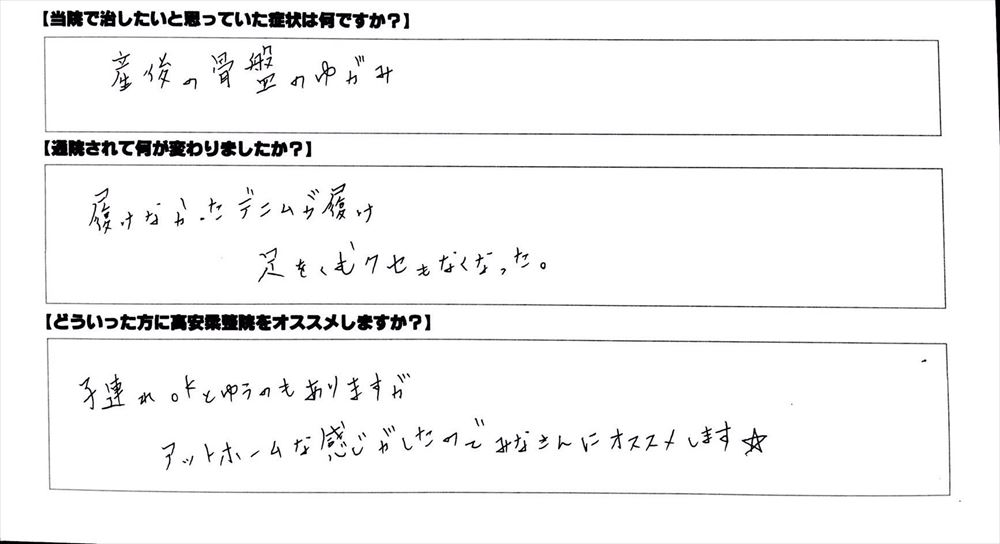 【当院で治したいと思っていた症状は何ですか？】
産後の骨盤のゆがみ
【通院されて何が変わりましたか？】
履けなかったデニムが履け
足をくむクセもなくなった。
【どういった方に高安柔整院をオススメしますか？】
子連れOKとゆうのもありますが
アットホームな感じがしたのでみなさんにオススメします☆